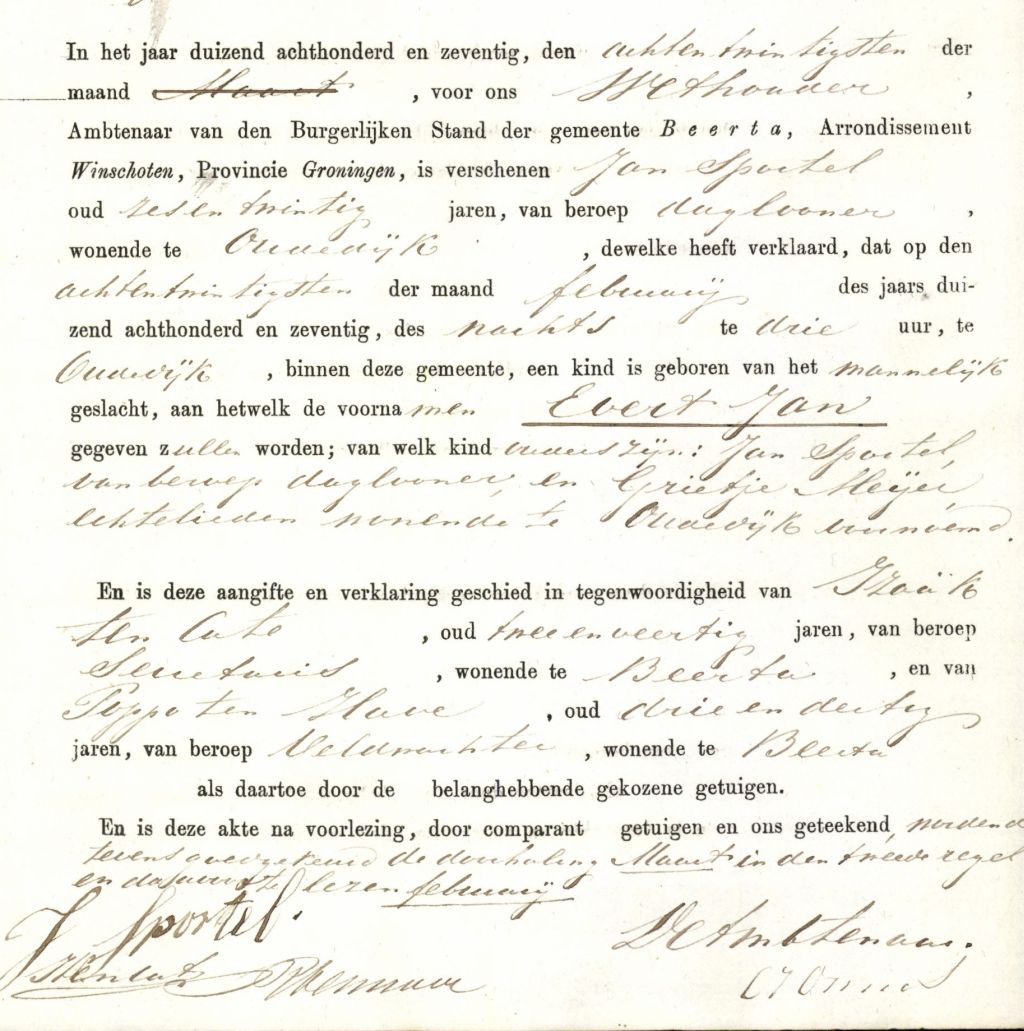 In het jaar duizend achthonderd en zeventig, den achtentwintigsten der
maand Maart , voor ons Wethouder ,
Ambtenaar van den Burgerlijken Stand der gemeente Beerta, Arrondissement
Winschoten, Provincie Groningen, is verschenen Jan Sportel
oud zesentwintig jaren, van beroep daglooner ,
wonende te Oudedijk , dewelke heeft verklaard, dat op den
achtentwintigsten der maand februarij des jaars dui-
zend achthonderd en zeventig, des nachts te drie uur, te
Oudedijk , binnen deze gemeente, een kind is geboren van het mannelijk
geslacht, aan hetwelk de voornamen Evert Jan
gegeven zullen worden; van welk kind ouders zijn: Jan Sportel,
van beroep daglooner, en Grietje Meijer,
echtelieden wonende te Oudedijk voornoemd.
En is deze aangifte en verklaring geschied in tegenwoordigheid van Izaäk
ten Cate , oud tweeenveertig jaren, van beroep
Secretaris , wonende te Beerta , en van
Poppo ten Have , oud drieendertig
jaren, van beroep Veldwachter , wonende te Beerta
als daartoe door de belanghebbende gekozene getuigen.
En is deze akte na voorlezing, door comparant getuigen en ons geteekend, wordende
tevens goedgekeurd de doorhaling Maart in den tweede regel
en daarvoor te lezen februarij
J Sportel. De Ambtenaar.